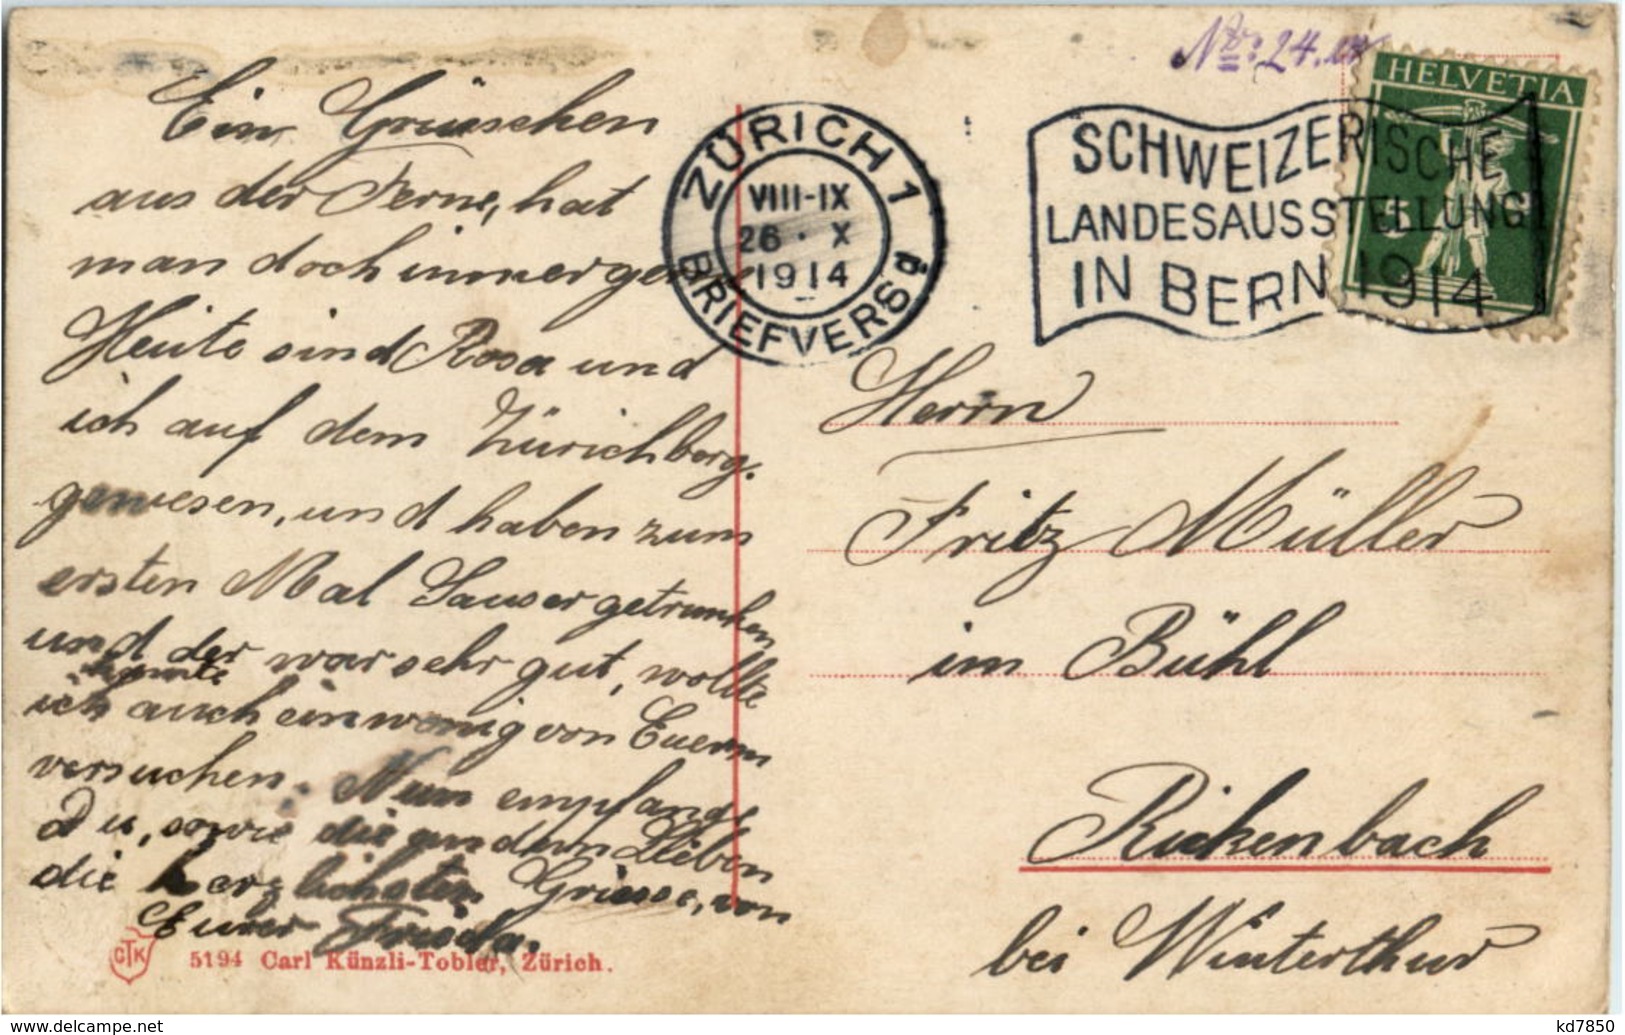 Ein Grüsschen
aus der Ferne, hat
man doch immer gerne
Heute sind Rosa und
ich auf dem Zürichberg.
gewesen, und haben zum
ersten Mal Sauser getrunken
und der war sehr gut, wollte
könnte
ich auch ein wenig von Euerm
versuchen. Nun empfang,
Du, sowie die andern Lieben
die herzlichsten Grüsse, von
Eurer Frieda.
CTK
5194 Carl Künzli-Tobler, Zürich.
No: 24.
ZÜRICH 1
VIII-IX
26. X
1914
BRIEFVERSd.
SCHWEIZERISCHE
LANDESAUSSTELLUNG
IN BERN 1914
HELVETIA
5
Herrn
Fritz Müller
im Bühl
Rickenbach
bei Winterthur
www.delcampe.net
kd7850